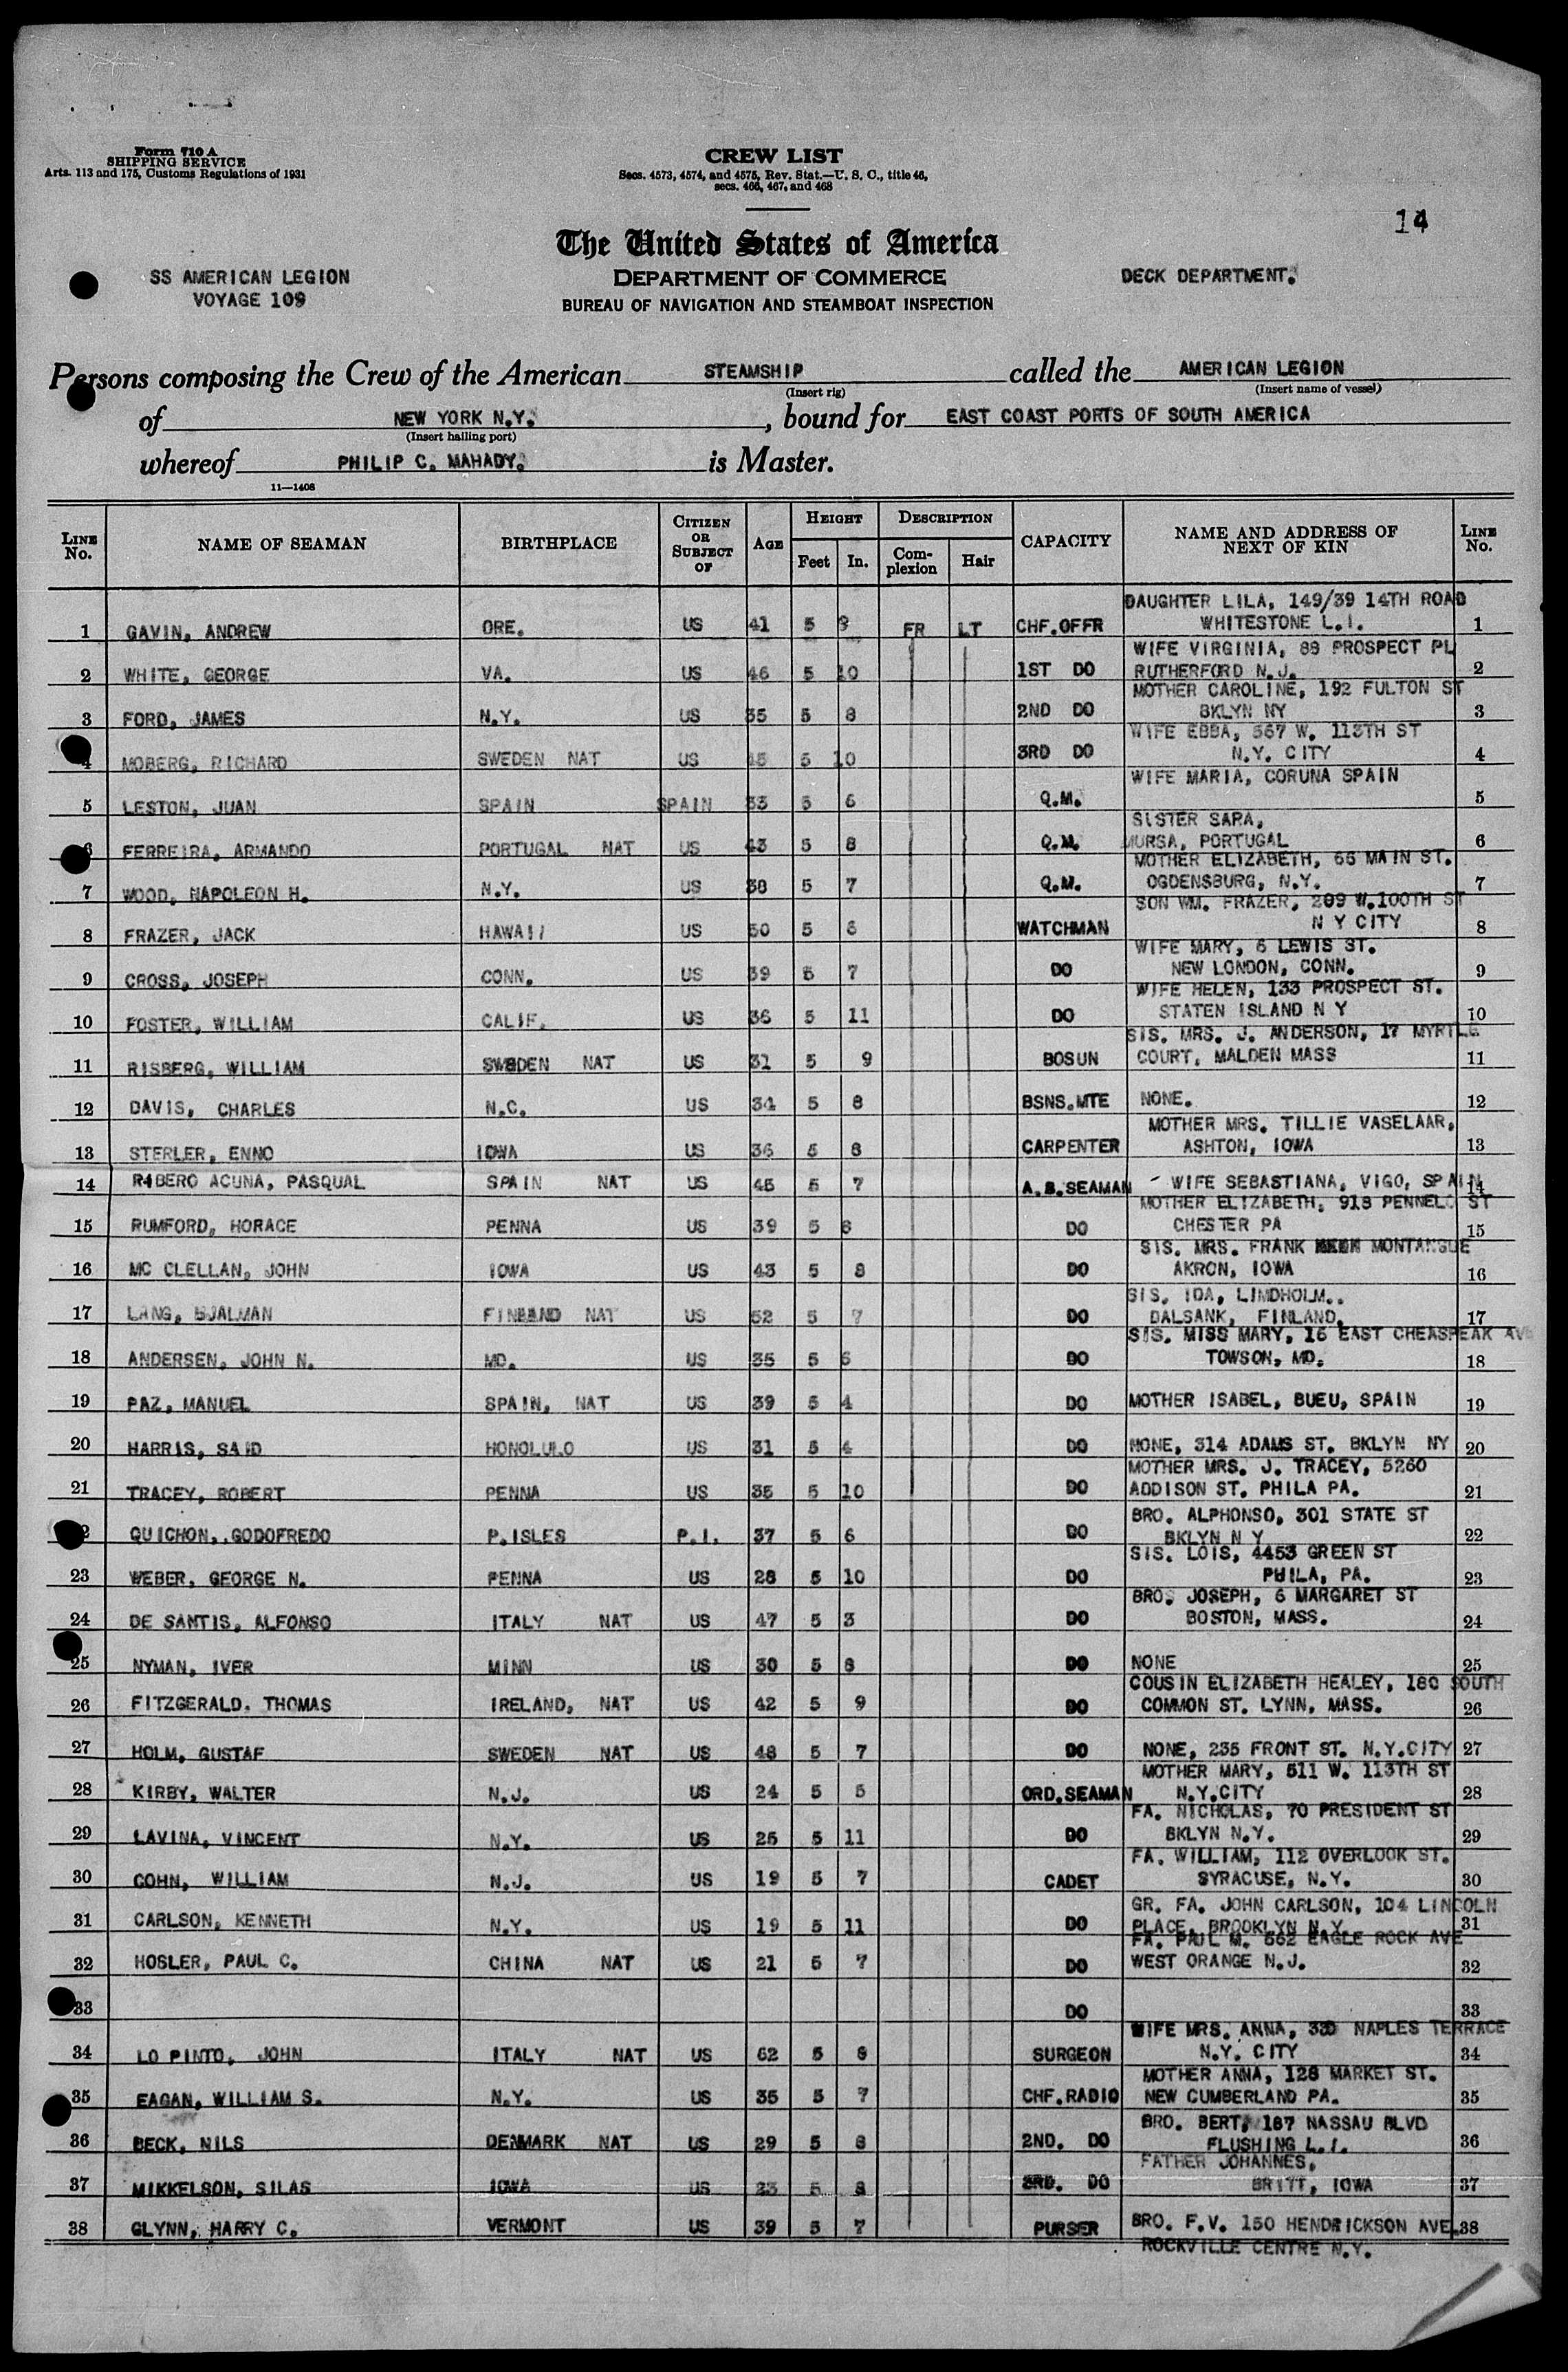 Form 710 A
SHIPPING SERVICE
Arts. 113 and 175, Customs Regulations of 1931
CREW LIST
Secs. 4573, 4574, and 4575, Rev. Stat.—U. S. C., title 46,
secs. 466, 467, and 468
14
The United States of America
SS AMERICAN LEGION
VOYAGE 109
DEPARTMENT OF COMMERCE
BUREAU OF NAVIGATION AND STEAMBOAT INSPECTION
DECK DEPARTMENT.
Persons composing the Crew of the American STEAMSHIP called the AMERICAN LEGION
(Insert rig) (Insert name of vessel)
of NEW YORK N.Y. , bound for EAST COAST PORTS OF SOUTH AMERICA
(Insert hailing port)
whereof PHILIP C. MAHADY. is Master.
11—1408
LINE No. NAME OF SEAMAN BIRTHPLACE CITIZEN OR SUBJECT OF AGE HEIGHT Feet In. DESCRIPTION Complexion Hair CAPACITY NAME AND ADDRESS OF NEXT OF KIN LINE No.
DAUGHTER LILA, 149/39 14TH ROAD
1 GAVIN, ANDREW ORE. US 41 5 9 FR LT CHF.OFFR WHITESTONE L.I. 1
WIFE VIRGINIA, 89 PROSPECT PL
2 WHITE, GEORGE VA. US 46 5 10 1ST DO RUTHERFORD N.J. 2
MOTHER CAROLINE, 192 FULTON ST
3 FORD, JAMES N.Y. US 35 5 8 2ND DO BKLYN NY 3
WIFE EBBA, 567 W. 113TH ST
4 MOBERG, RICHARD SWEDEN NAT US 5 10 3RD DO N.Y. CITY 4
WIFE MARIA, CORUNA SPAIN
5 LESTON, JUAN SPAIN SPAIN 33 5 6 Q.M. 5
SISTER SARA,
6 FERREIRA, ARMANDO PORTUGAL NAT US 43 5 8 Q.M. MURSA, PORTUGAL 6
MOTHER ELIZABETH, 66 MAIN ST.
7 WOOD, NAPOLEON H. N.Y. US 38 5 7 Q.M. OGDENSBURG, N.Y. 7
SON WM. FRAZER, 209 W.100TH ST
8 FRAZER, JACK HAWAII US 50 5 6 WATCHMAN N Y CITY 8
WIFE MARY, 6 LEWIS ST.
9 CROSS, JOSEPH CONN. US 39 5 7 DO NEW LONDON, CONN. 9
WIFE HELEN, 133 PROSPECT ST.
10 FOSTER, WILLIAM CALIF. US 36 5 11 DO STATEN ISLAND N Y 10
SIS. MRS. J. ANDERSON, 17 MYRTLE
11 RISBERG, WILLIAM SWEDEN NAT US 31 5 9 BOSUN COURT, MALDEN MASS 11
12 DAVIS, CHARLES N.C. US 34 5 8 BSNS.MTE NONE. 12
MOTHER MRS. TILLIE VASELAAR,
13 STERLER, ENNO IOWA US 36 5 8 CARPENTER ASHTON, IOWA 13
14 RIBERO ACUNA, PASQUAL SPAIN NAT US 45 5 7 A.B.SEAMAN WIFE SEBASTIANA, VIGO, SPAIN 14
MOTHER ELIZABETH, 918 PENNELL ST
15 RUMFORD, HORACE PENNA US 39 5 8 DO CHESTER PA 15
SIS. MRS. FRANK MONTANGUE
16 MC CLELLAN, JOHN IOWA US 43 5 8 DO AKRON, IOWA 16
SIS. IDA, LIMDHOLM..
17 LANG, HJALMAN FINLAND NAT US 52 5 7 DO DALSANK, FINLAND. 17
SIS. MISS MARY, 16 EAST CHEASPEAK AVE
18 ANDERSEN, JOHN N. MD. US 35 5 6 DO TOWSON, MD. 18
19 PAZ, MANUEL SPAIN, NAT US 39 5 4 DO MOTHER ISABEL, BUEU, SPAIN 19
20 HARRIS, SAID HONOLULO US 31 5 4 DO NONE, 314 ADAMS ST. BKLYN NY 20
MOTHER MRS. J. TRACEY, 5260
21 TRACEY, ROBERT PENNA US 35 5 10 DO ADDISON ST. PHILA PA. 21
BRO. ALPHONSO, 301 STATE ST
22 QUICHON, GODOFREDO P.ISLES P.I. 37 5 6 DO BKLYN N Y 22
SIS. LOIS, 4453 GREEN ST
23 WEBER, GEORGE N. PENNA US 28 5 10 DO PHILA, PA. 23
BRO. JOSEPH, 6 MARGARET ST
24 DE SANTIS, ALFONSO ITALY NAT US 47 5 3 DO BOSTON, MASS. 24
25 NYMAN, IVER MINN US 30 5 8 DO NONE 25
COUSIN ELIZABETH HEALEY, 180 SOUTH
26 FITZGERALD. THOMAS IRELAND, NAT US 42 5 9 DO COMMON ST. LYNN, MASS. 26
27 HOLM, GUSTAF SWEDEN NAT US 48 5 7 DO NONE, 235 FRONT ST. N.Y.CITY 27
MOTHER MARY, 511 W. 113TH ST
28 KIRBY, WALTER N.J. US 24 5 5 ORD.SEAMAN N.Y.CITY 28
FA. NICHOLAS, 70 PRESIDENT ST
29 LAVINA, VINCENT N.Y. US 25 5 11 DO BKLYN N.Y. 29
FA. WILLIAM, 112 OVERLOOK ST.
30 COHN, WILLIAM N.J. US 19 5 7 CADET SYRACUSE, N.Y. 30
GR. FA. JOHN CARLSON, 104 LINCOLN
31 CARLSON, KENNETH N.Y. US 19 5 11 DO PLACE, BROOKLYN N.Y. 31
FA. PAUL M. 562 EAGLE ROCK AVE
32 HOSLER, PAUL C. CHINA NAT US 21 5 7 DO WEST ORANGE N.J. 32
33 DO 33
WIFE MRS. ANNA, 330 NAPLES TERRACE
34 LO PINTO, JOHN ITALY NAT US 62 5 8 SURGEON N.Y. CITY 34
MOTHER ANNA, 128 MARKET ST.
35 EAGAN, WILLIAM S. N.Y. US 35 5 7 CHF.RADIO NEW CUMBERLAND PA. 35
BRO. BERT, 187 NASSAU BLVD
36 BECK, NILS DENMARK NAT US 29 5 8 2ND. DO FLUSHING L.I. 36
FATHER JOHANNES,
37 MIKKELSON, SILAS IOWA US 23 5 8 3RD. DO BRITT, IOWA 37
38 GLYNN, HARRY C. VERMONT US 39 5 7 PURSER BRO. F.V. 150 HENDRICKSON AVE. 38
ROCKVILLE CENTRE N.Y.